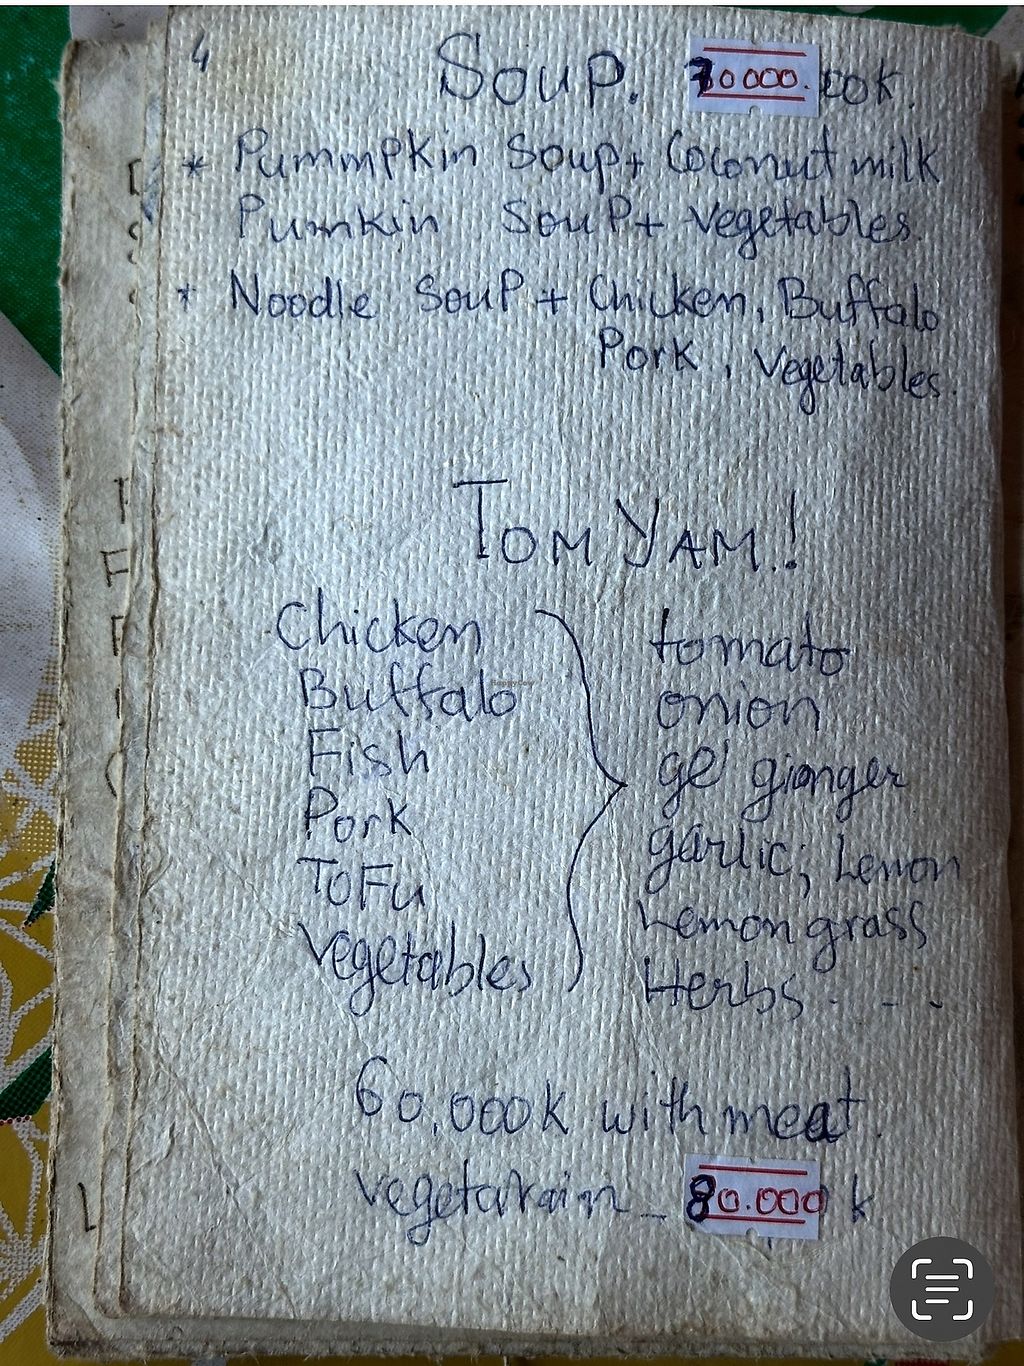 4
Soup. 70000. ook.
* Pummpkin Soup + Coconut milk
Pumnkin Soup + vegetables.
* Noodle Soup + Chicken, Buffalo
Pork, vegetables.
TOM YAM!
Chicken tomato
Buffalo onion
Fish ge gianger
Pork garlic; Lemon
ToFu Lemon grass
vegetables Herbs . - - -
60,000K with meat.
vegetarain - 80.000 k
HappyCow